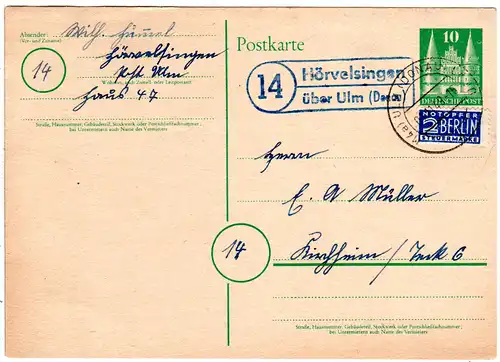 Absender: Wilh. Hummel
(Vor- und Zuname)
Hörvelsingen
Wohnort, auch Zustell- oder Leitpostamt
14
Post Ulm
Haus 47
Straße, Hausnummer, Gebäudeteil, Stockwerk oder Postschließfachnummer;
bei Untermietern auch Name des Vermieters
Postkarte
14
Hörvelsingen
über Ulm (Donau)
10
DEUTSCHE POST
NOTOPFER
2 BERLIN
STEUERMARKE
Herrn
E. A Müller
14
Kirchheim/Teck 6
Straße, Hausnummer, Gebäudeteil, Stockwerk oder Postschließfachnummer;
bei Untermietern auch Name des Vermieters